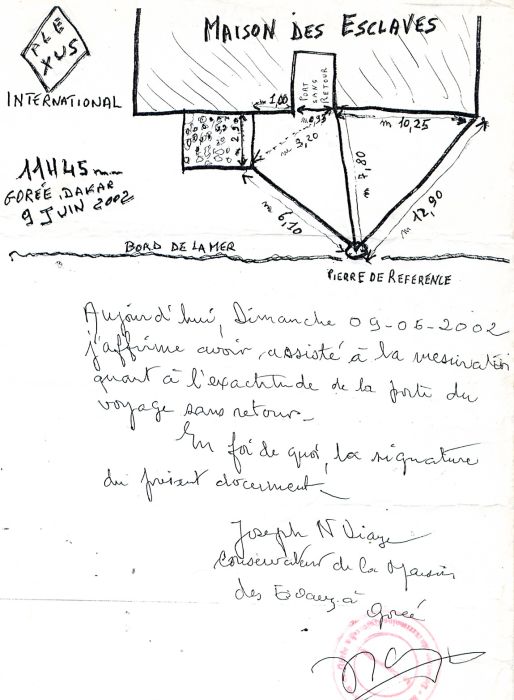 PLEXUS
INTERNATIONAL
MAISON DES ESCLAVES
PORT SANS RETOUR
1,00
m 3,20
m 10,25
m 7,80
m 6,10
m 12,90
11H45
GORÉE, DAKAR
9 JUIN 2002
BORD DE LA MER
PIERRE DE REFERENCE
Aujourd'hui, Dimanche 09-06-2002
j'affirme avoir assisté à la mesuration
quant à l'exactitude de la porte du
voyage sans retour_
En foi de quoi, la signature
du présent document_
Joseph N'Diaye
Conservateur de la Maison
des Esclaves à
Gorée